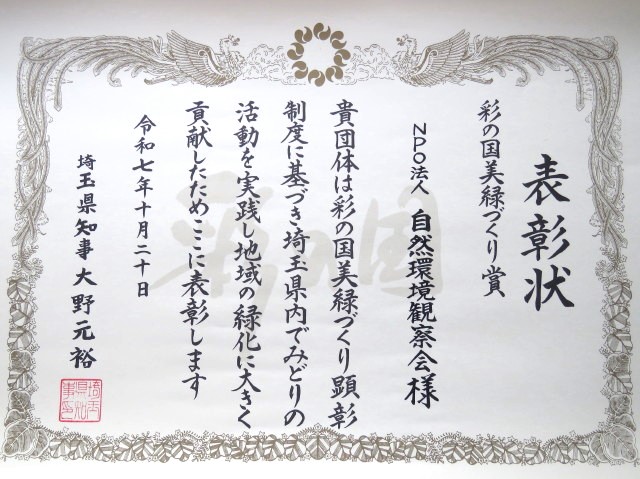 表彰状
彩の国美緑づくり賞
NPO法人 自然環境観察会様
貴団体は彩の国美緑づくり顕彰
制度に基づき埼玉県内でみどりの
活動を実践し地域の緑化に大きく
貢献したためここに表彰します
令和七年十月二十日
埼玉県知事 大野元裕
彩の国
埼玉県知事印